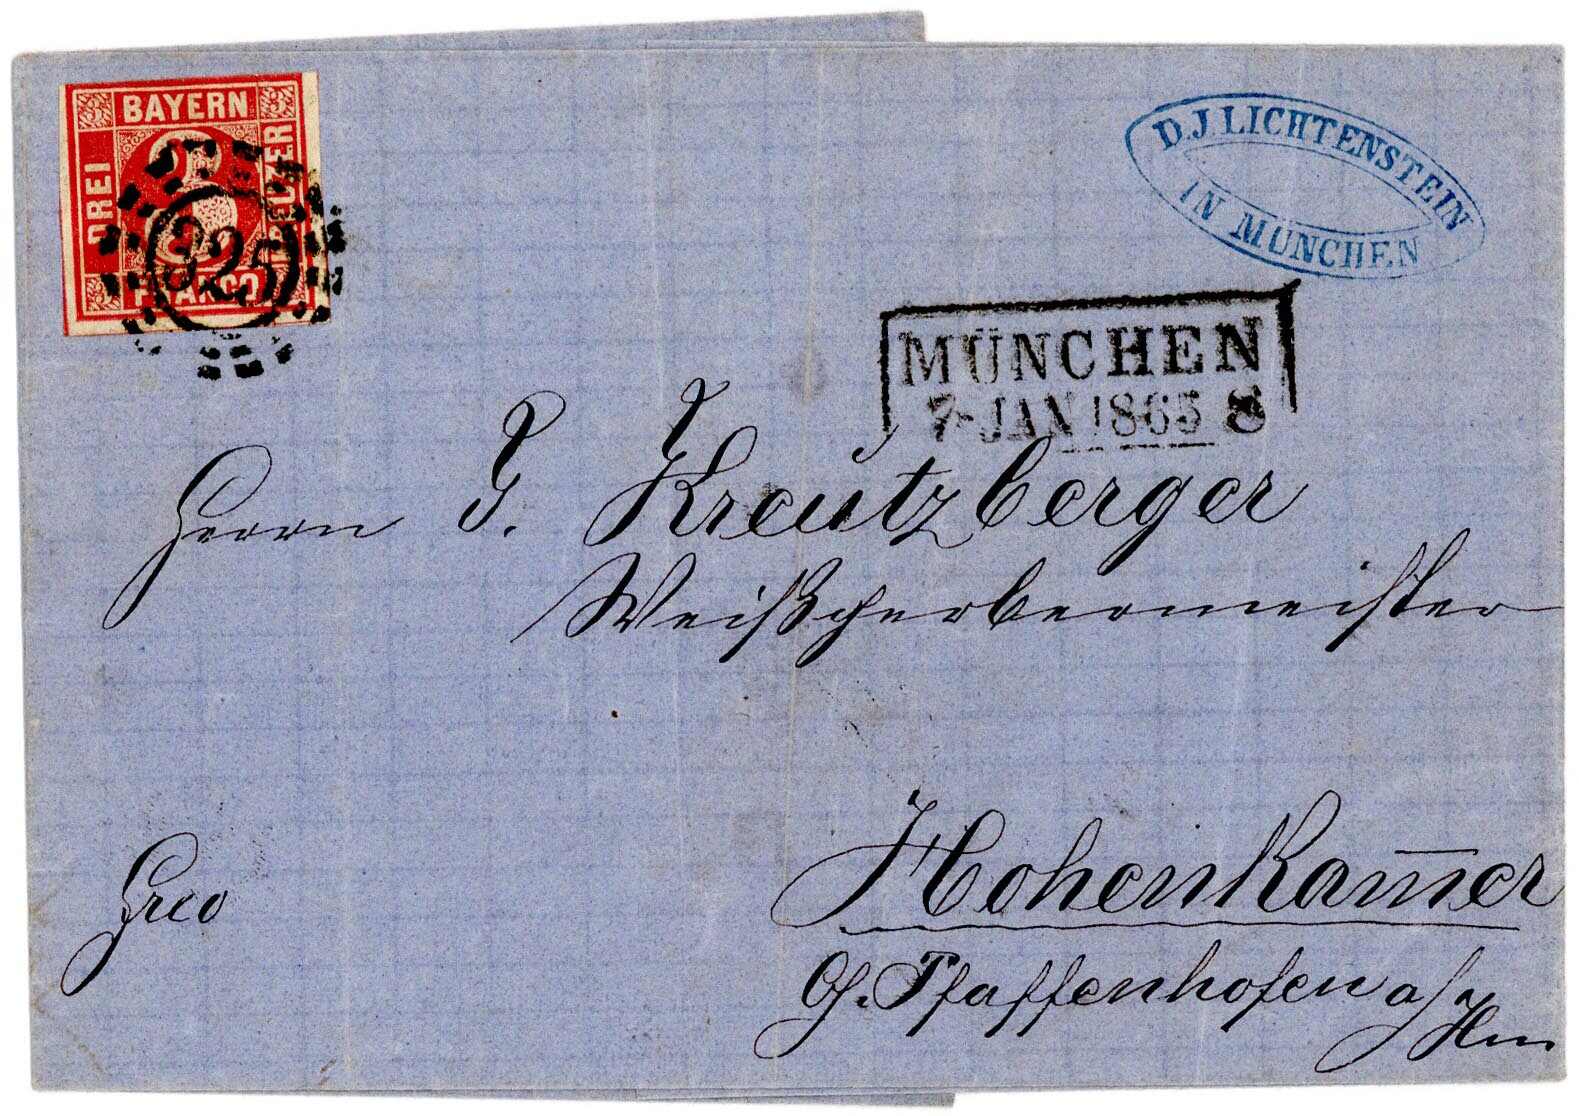 BAYERN
DREI
KREUZER
FRANCO
3
325
D. J. LICHTENSTEIN
IN MÜNCHEN
MÜNCHEN
7 JAN 1865 8
Herrn Kreutzberger
Weißgerbermeister
Hohenkam̅er
Pfaffenhofen a/
frco